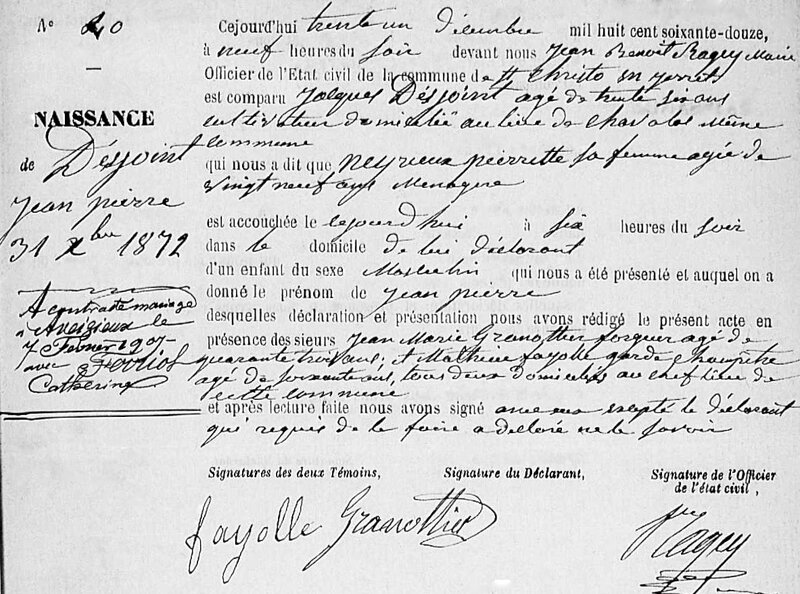 N° 40
NAISSANCE
de Désjoint
jean pierre
31 Xbre 1872
A contracté mariage
à Aveizieux le
7 Février 1907
avec
Catherine
Cejourd'hui trente un décembre mil huit cent soixante-douze,
à neuf heures du soir devant nous Jean Benoit Ragey Maire
Officier de l'Etat civil de la commune de St Christo en jarrets
est comparu Jacques Désjoint agé de trente six ans
cultivateur domicilié au lieu de même
commune
qui nous a dit que neyrieux pierrette sa femme agée de
vingt neuf ans Menagère
est accouchée le cejourd'hui à six heures du soir
dans le domicile de lui déclarant
d'un enfant du sexe Masculin qui nous a été présenté et auquel on a
donné le prénom de jean pierre
desquelles déclaration et présentation nous avons rédigé le présent acte en
présence des sieurs jean Marie Granottier agé de
quarante trois ans, et Mathieu fayolle garde champêtre
agé de soixante ans, tous deux domiciliés au chef lieu de
cette commune
et après lecture faite nous avons signé avec eux excepté le déclarant
qui requis de le faire a déclaré ne le savoir
Signatures des deux Témoins, Signature du Déclarant, Signature de l'Officier
de l'état civil,
fayolle Granottier Ragey